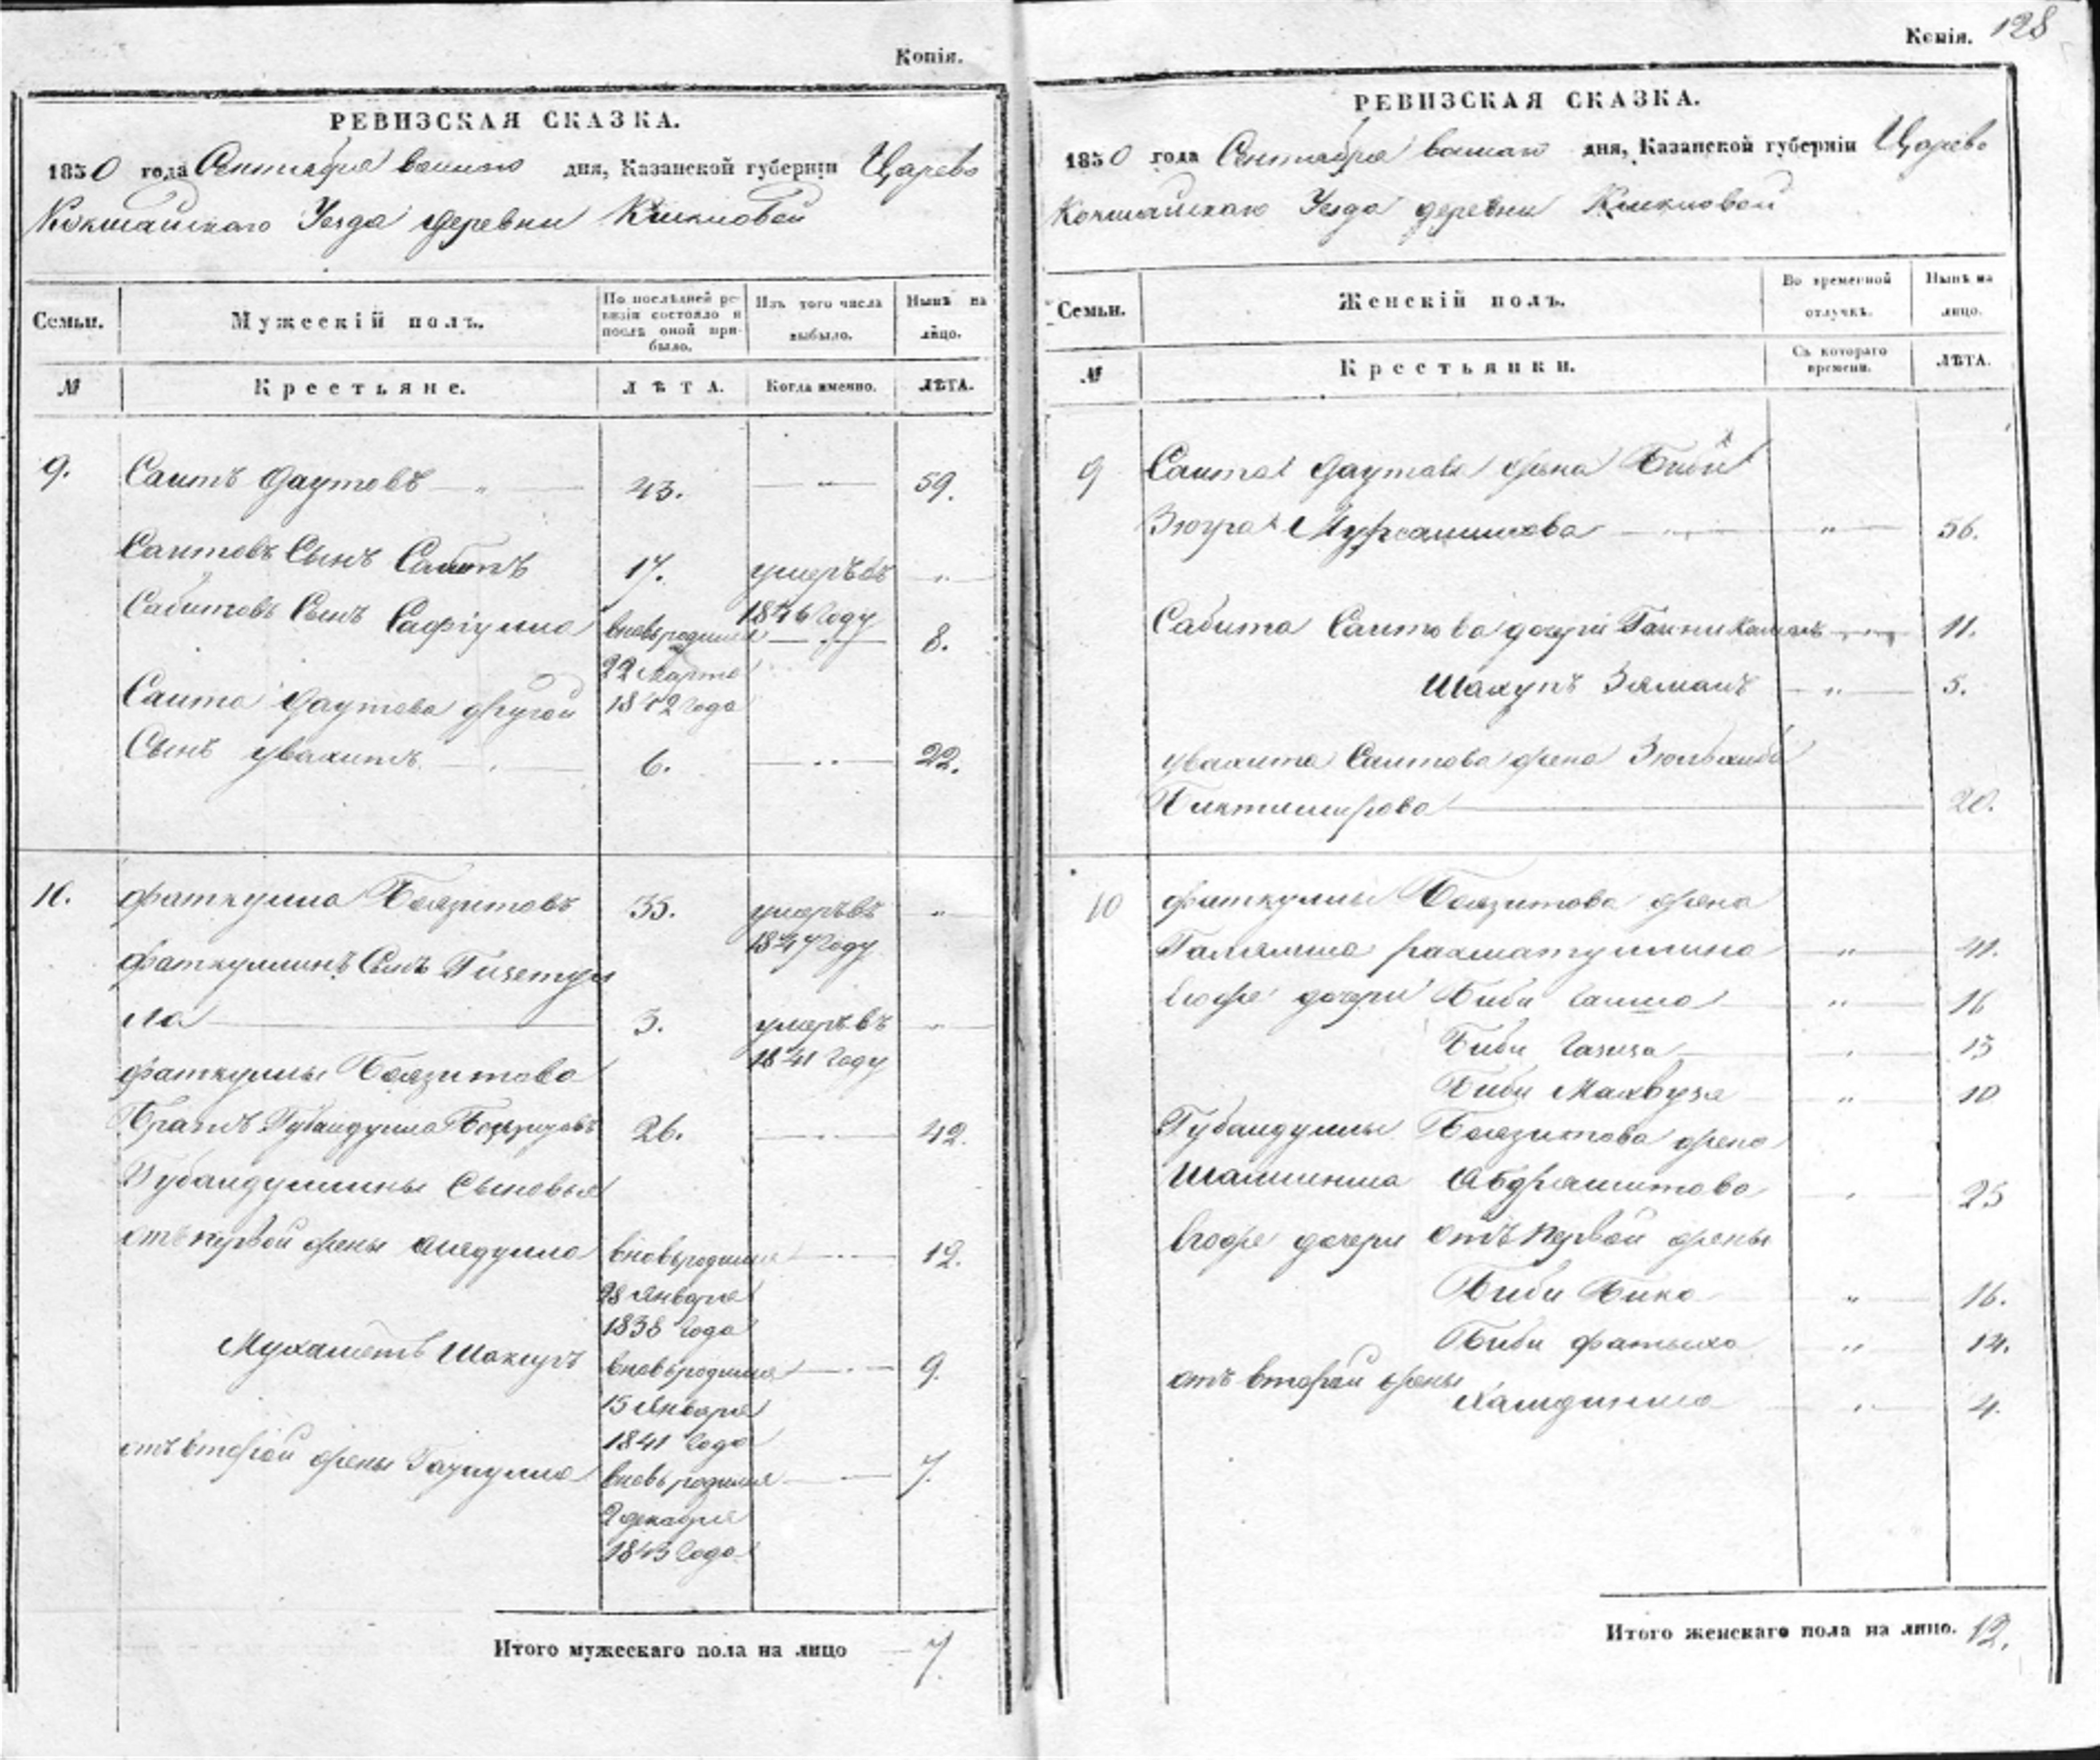 Копія.
РЕВИЗСКАЯ СКАЗКА.
1850 года Сентября дня, Казанской губерніи Царево
Кокшайскаго Уезда деревни
Семьи.
Мужескій полъ.
По послѣдней ре-
визіи состояло и
послѣ оной при-
было.
Изъ того числа
выбыло.
Нынѣ на
лицо.
№
Крестьяне.
ЛѢТА.
Когда именно.
ЛѢТА.
9. Саитъ Даутовъ 43. 59.
Саитовъ Сынъ Сабитъ 17. умеръ въ
1846 Году
Сабитовъ Сынъ Сафіулла вновьродился 8.
22 Марта
1842 Года
Саита Даутова другой
Сынъ Увахитъ 6. 22.
10. Фаткулла Баязитовъ 35. умеръ въ
1847 Году
Фаткуллинъ Сынъ
ла 3. умеръ въ
1841 Году
Фаткуллы Баязитова
Братъ Губайдулла Баязитовъ 26. 42.
Губайдуллины Сыновья
отъ первой жены вновьродился 12.
28 Января
1838 Года
Мухаметъ Шакиръ вновьродился 9.
15 Января
1841 Года
отъ второй жены вновьродился 7.
2 декабря
1843 Года
Итого мужескаго пола на лицо 7.
Копія. 128
РЕВИЗСКАЯ СКАЗКА.
1850 года Сентября дня, Казанской губерніи Царево
Кокшайскаго Уезда деревни
Семьи.
Женскій полъ.
Во временной
отлучкѣ.
Нынѣ на
лицо.
№
Крестьянки.
Съ котораго
времени.
ЛѢТА.
9 Саита Даутова жена Биби
Зюгра 56.
Сабита Саитова дочери 11.
5.
Увахита Саитова жена
Биктимирова 20.
10 Фаткуллы Баязитова жена
Рахматуллина 41.
Егоже дочери Биби 16
Биби 13
Биби 10
Губайдуллы Баязитова жена
Абдряшитова 25
Егоже дочери отъ первой жены
Биби Бика 16.
Биби Фатыха 14.
отъ второй жены
4.
Итого женскаго пола на лицо. 12.